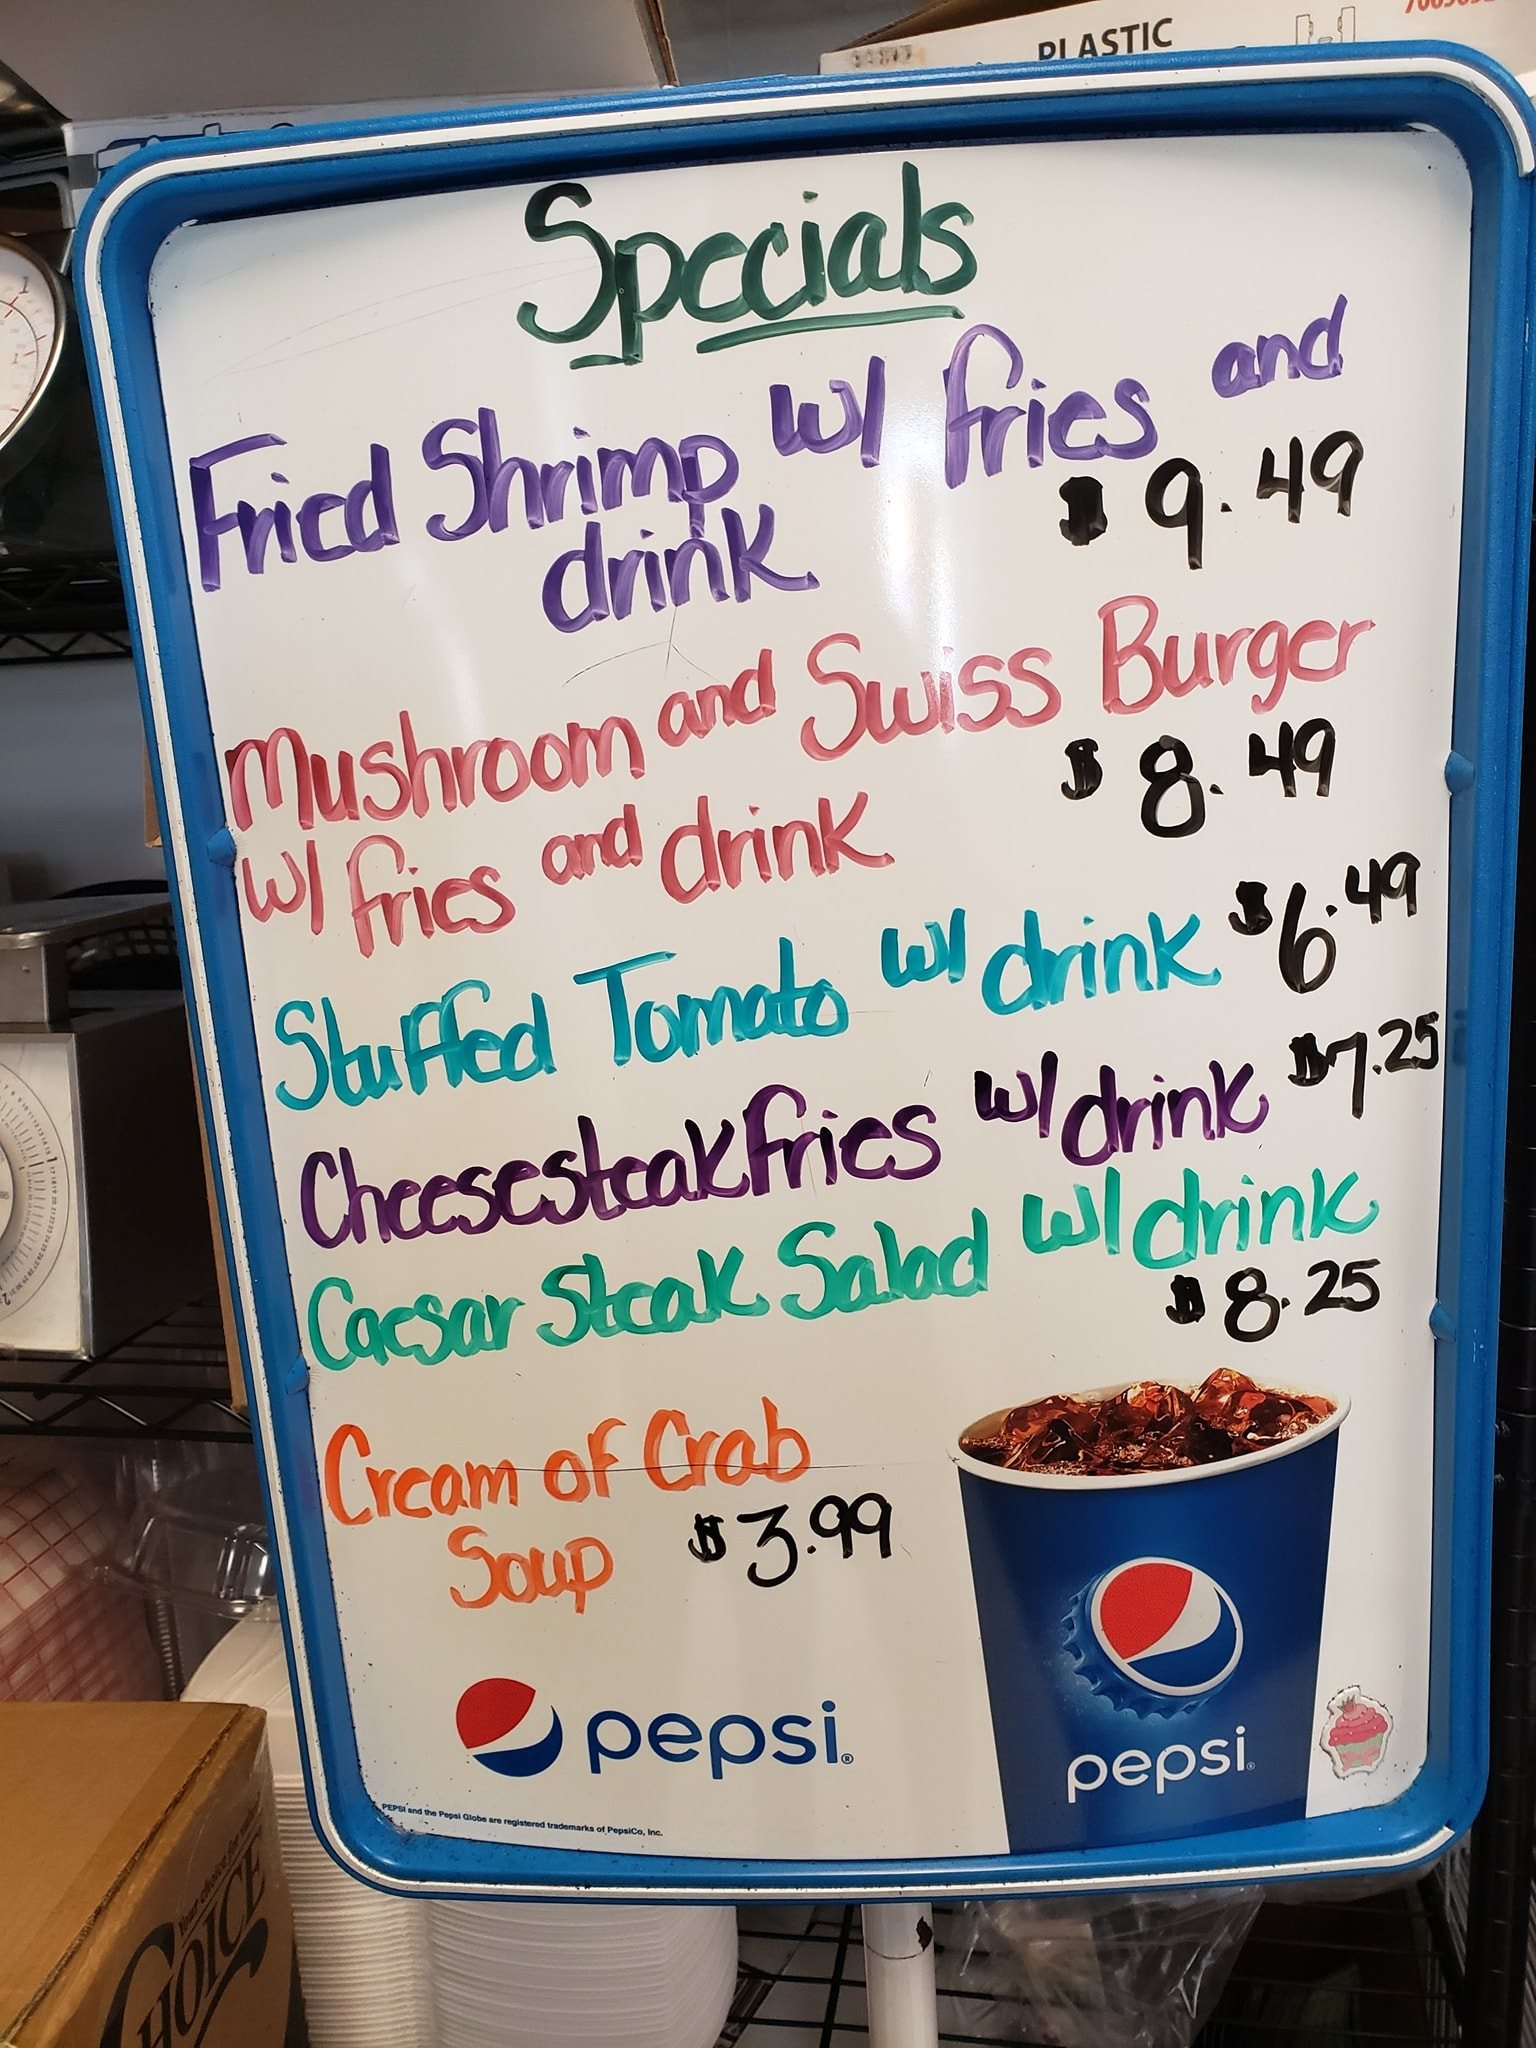 PLASTIC
Specials
Fried Shrimp w/ fries and
drink $9.49
Mushroom and Swiss Burger
w/ fries and drink $8.49
Stuffed Tomato w/ drink $6.49
Cheesesteak fries w/ drink $7.25
Caesar Steak Salad w/ drink
$8.25
Cream of Crab
Soup $3.99
pepsi®
pepsi®
PEPSI and the Pepsi Globe are registered trademarks of PepsiCo, Inc.
CHOICE